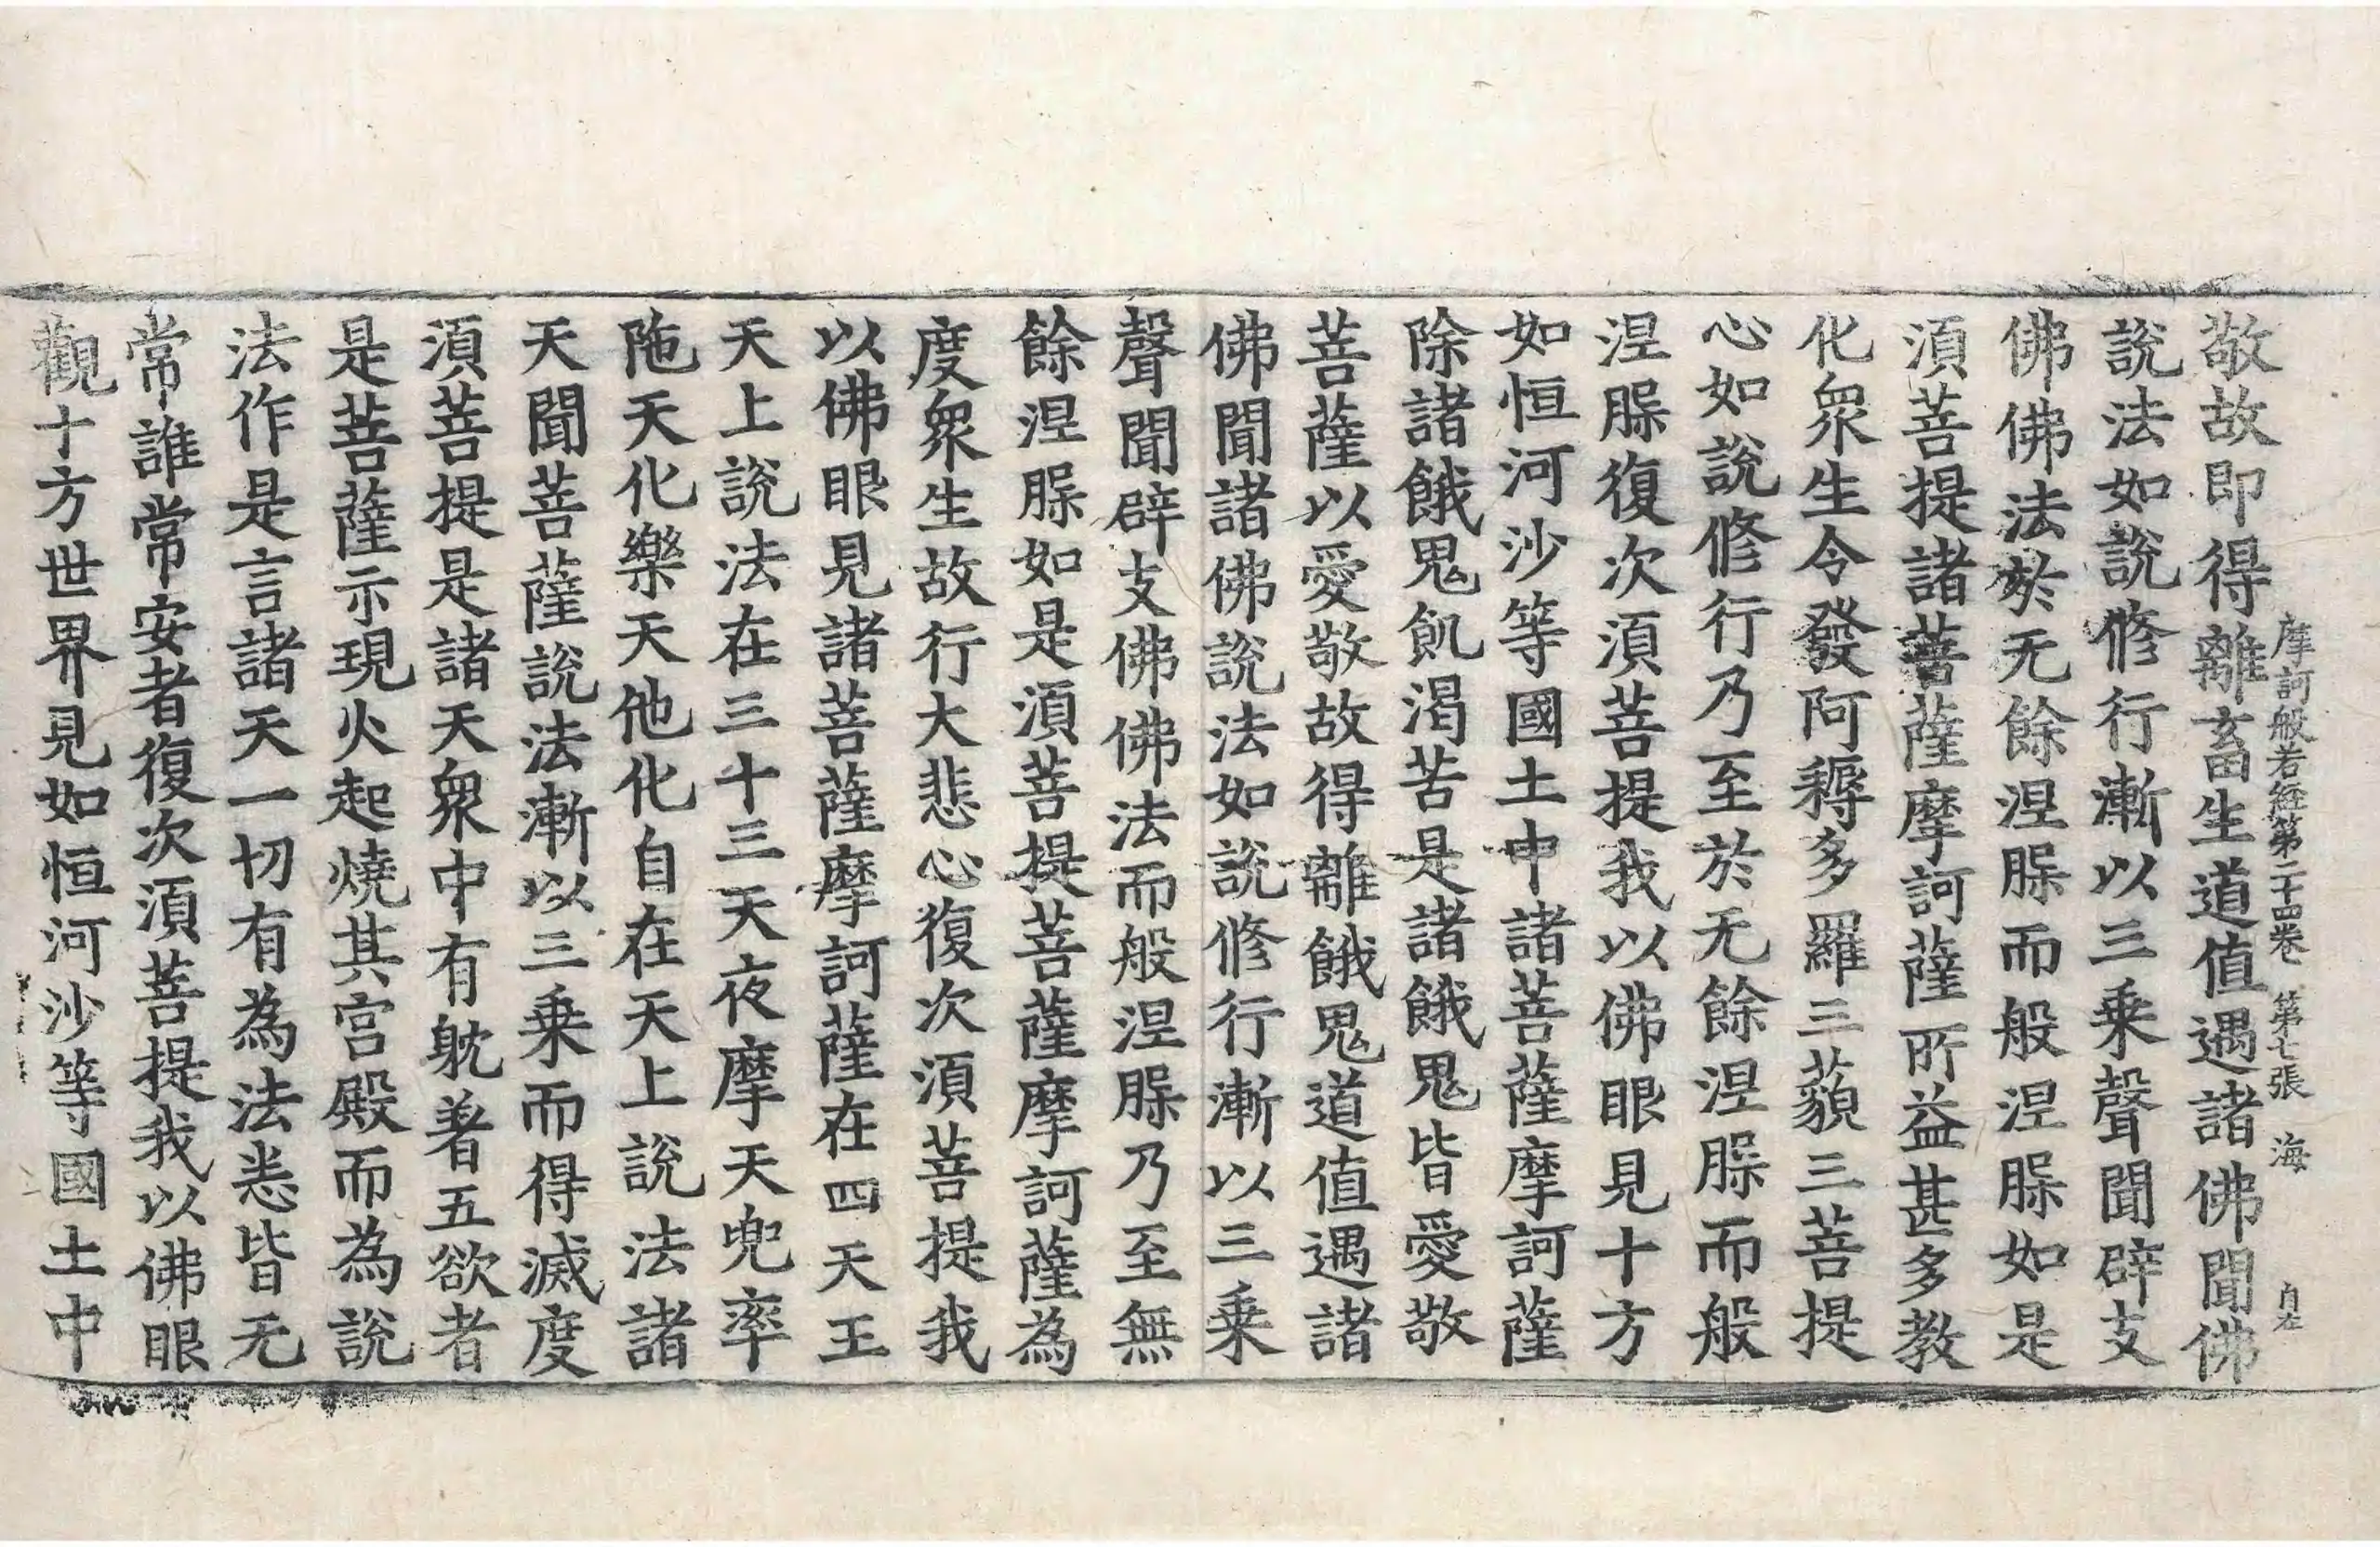 摩訶般若経第二十四巻　第七張　海
敬故即得離畜生道值遇諸佛聞佛
說法如說修行漸以三乗聲聞辟支
佛佛法於无餘涅腺而般涅腺如是
湏菩提諸菩薩摩訶薩所益甚多教
化衆生令發阿耨多羅三藐三菩提
心如說修行乃至於无餘涅腺而般
涅腺復次湏菩提我以佛眼見十方
如恒河沙等國土中諸菩薩摩訶薩
除諸餓鬼飢渴苦是諸餓鬼皆愛敬
菩薩以愛敬故得離餓鬼道值遇諸
佛聞諸佛說法如說修行漸以三乗
聲聞辟支佛佛法而般涅腺乃至無
餘涅腺如是湏菩提菩薩摩訶薩為
度衆生故行大悲心復次湏菩提我
以佛眼見諸菩薩摩訶薩在四天王
天上說法在三十三天夜摩天兜率
陁天化樂天他化自在天上說法諸
天聞菩薩說法漸以三乗而得滅度
湏菩提是諸天衆中有躭著五欲者
是菩薩示現火起燒其宫殿而為說
法作是言諸天一切有為法悉皆无
常誰常安者復次湏菩提我以佛眼
觀十方世界見如恒河沙等國土中